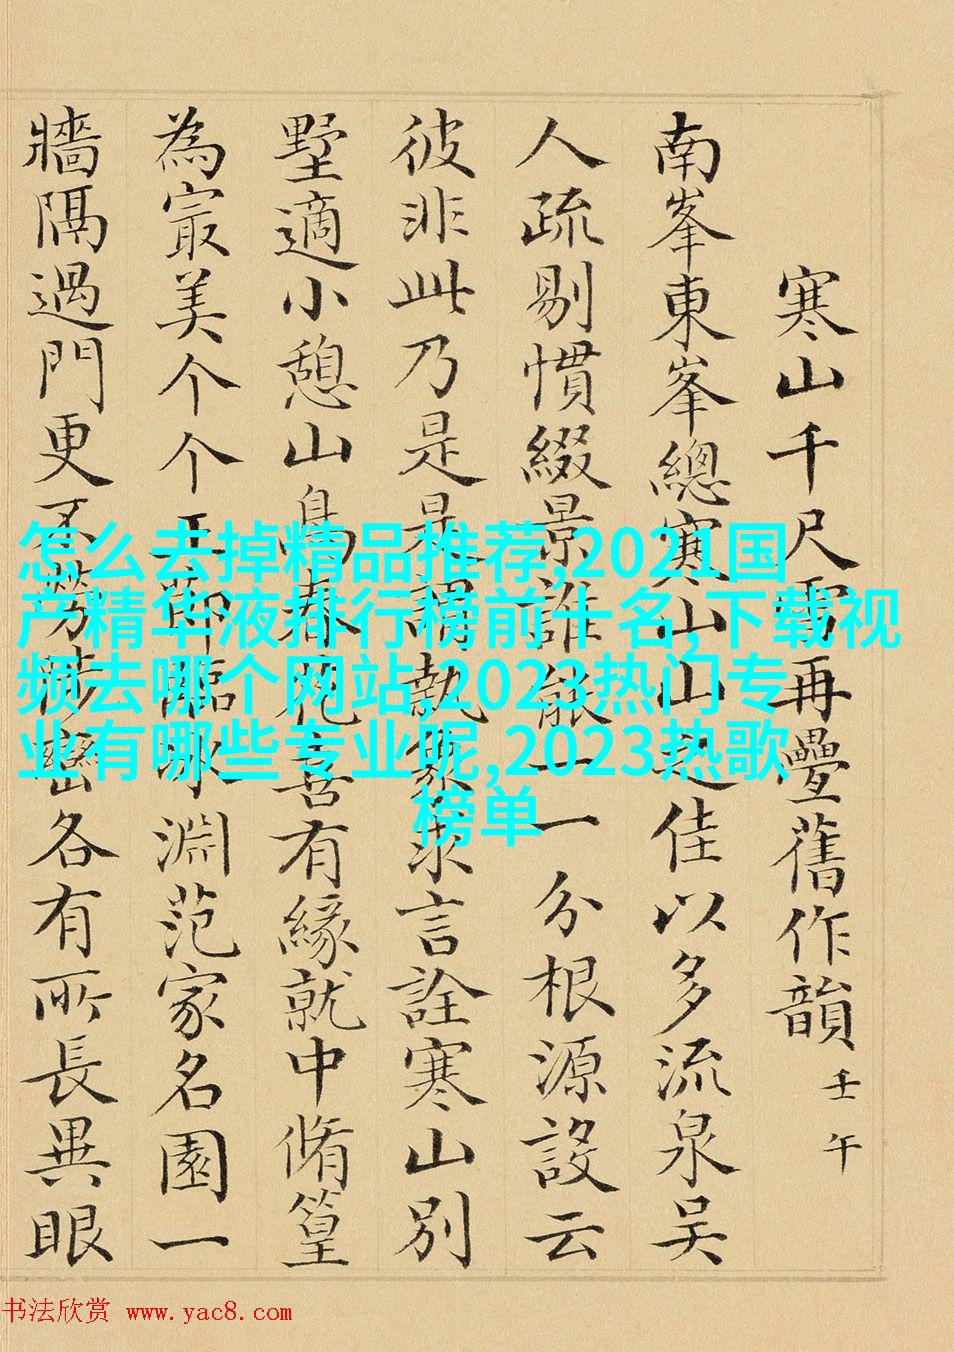 寒山千尺雪再疊舊作韻 壬午
南峯東峯總寒山山之佳以多流泉吴
人疏剔慣綴景誰能一一分根源設云
彼非此乃是是謂執象求言詮寒山别
墅適小憩山鳥春花喜有緣就中脩篁
為㝡美个个玉節臨冰淵范家名園一
牆隔過門更不勞陟巒各有所長異眼
怎么去掉精品推荐,2021国
产精华液排行榜前十名,下载视
频去哪个网站,2023热门专
业有哪些专业呢,2023热歌
榜单
书法欣赏 www.yac8.com